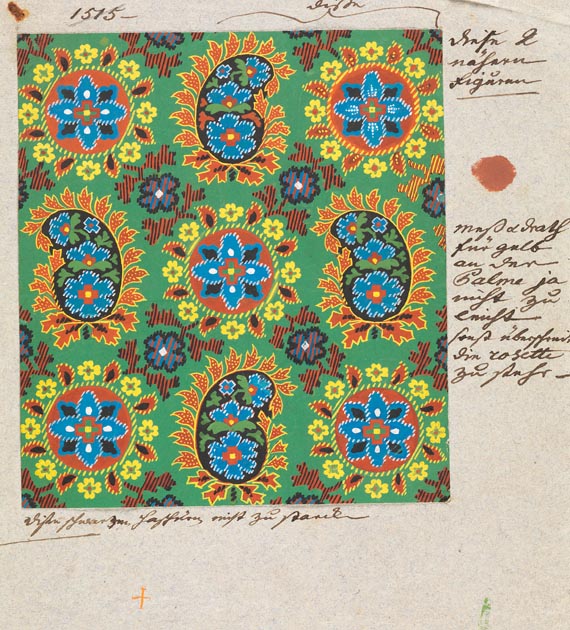 1515 –
diese
diese 2
nähern
figuren
mess & drath
für gelb
an der
Palme ja
nicht zu
leicht
sonst überschreit
die rosette
zu sehr –
diese schwarzen hachüren nicht zu stark